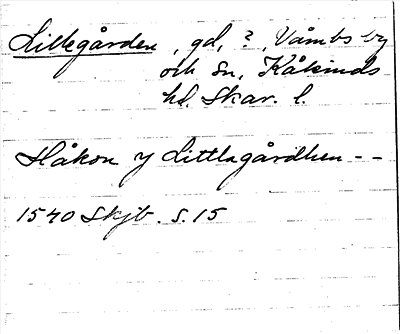 Lillegården, gd, ?, Våmbs by
och sn, Kåkinds
hd. Skar. l.
Håkon y Littlagårdhen - -
1540 Skjb. s. 15